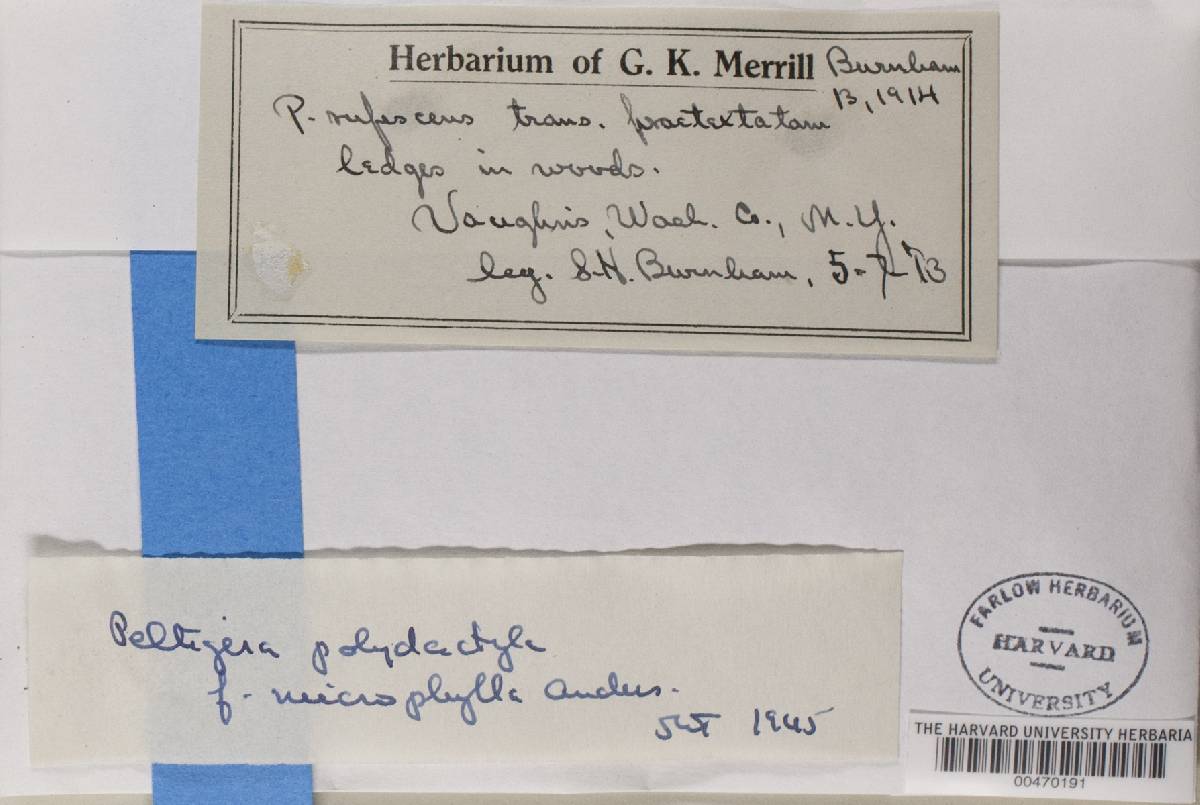 Herbarium of G. K. Merrill Burnham
13, 1914
P. rufescens trans. praetextatam
ledges in woods.
Vaughns, Wash. Co., N.Y.
leg. S.H. Burnham, 5-7-13
Peltigera polydactyla
f. microphylla Anders.
1945
FARLOW HERBARIUM
HARVARD
UNIVERSITY
THE HARVARD UNIVERSITY HERBARIA
00470191